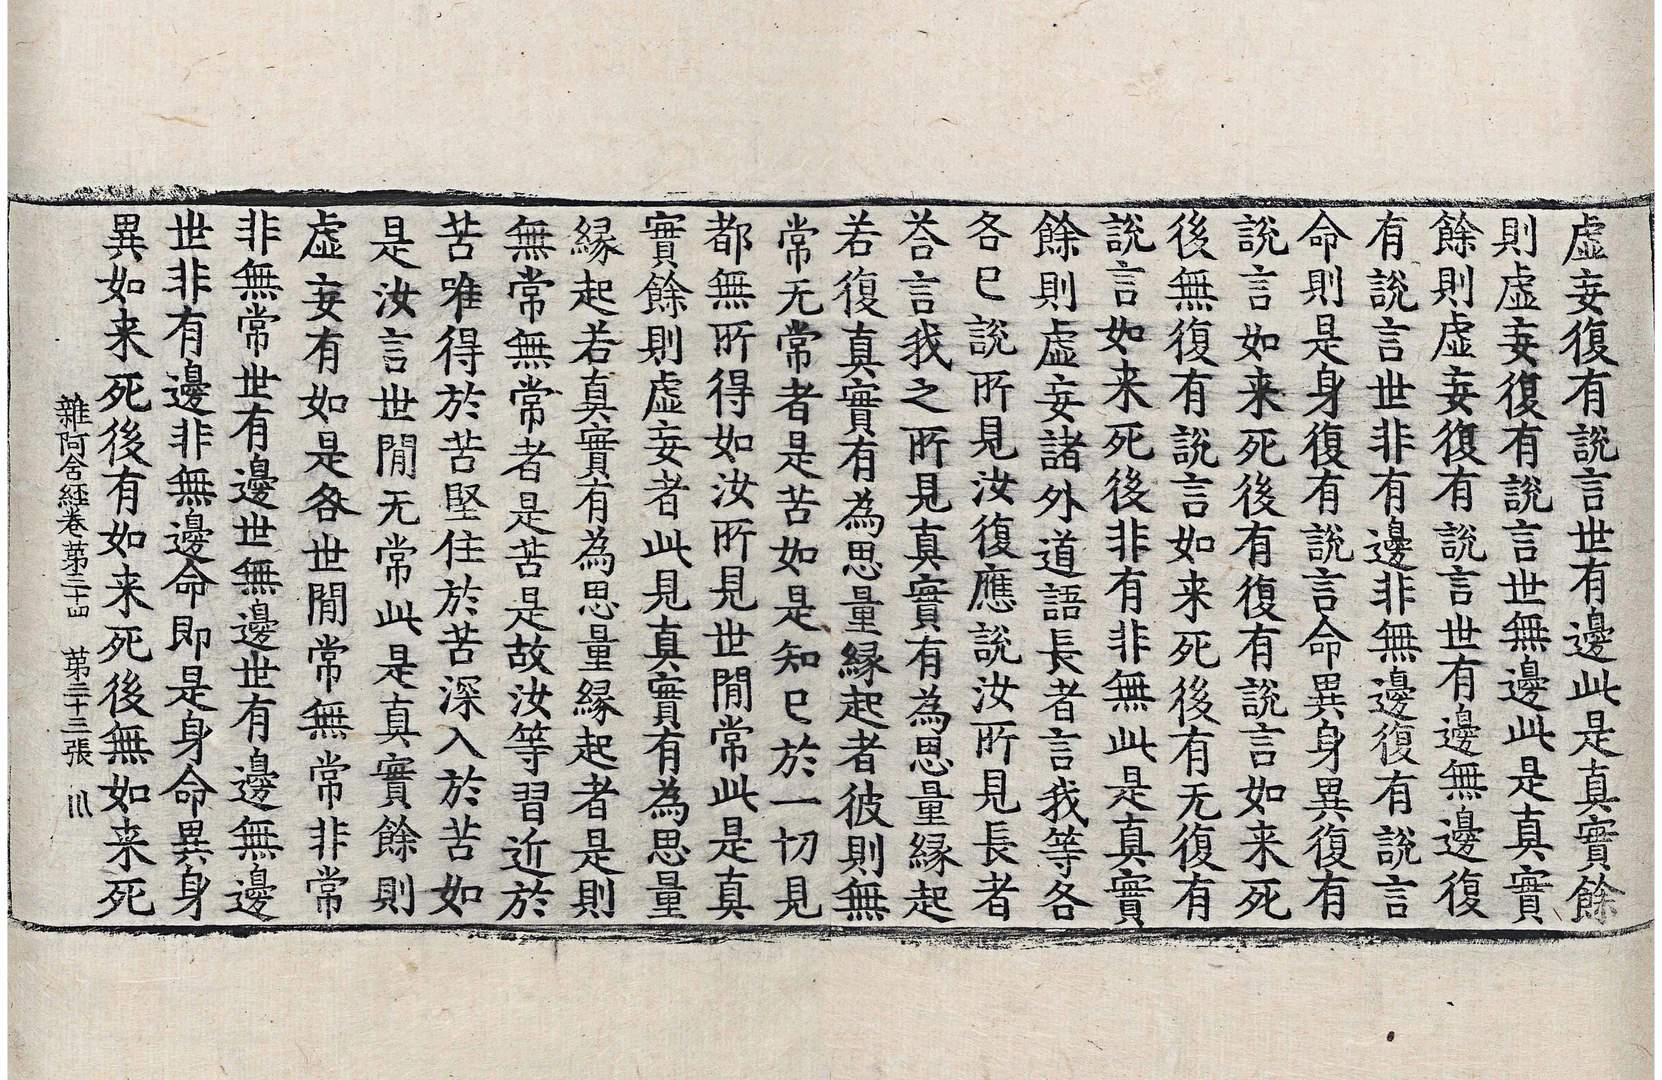 虛妄復有說言世有邊此是真實餘
則虛妄復有說言世無邊此是真實
餘則虛妄復有說言世有邊無邊復
有說言世非有邊非無邊復有說言
命則是身復有說言命異身異復有
說言如来死後有復有說言如来死
後無復有說言如来死後有无復有
說言如来死後非有非無此是真實
餘則虛妄諸外道語長者言我等各
各已說所見汝復應說汝所見長者
荅言我之所見真實有為思量緣起
若復真實有為思量緣起者彼則無
常无常者是苦如是知已於一切見
都無所得如汝所見世閒常此是真
實餘則虛妄者此見真實有為思量
緣起若真實有為思量緣起者是則
無常無常者是苦是故汝等習近於
苦唯得於苦堅住於苦深入於苦如
是汝言世閒无常此是真實餘則
虛妄有如是各世閒常無常非常
非無常世有邊世無邊世有邊無邊
世非有邊非無邊命即是身命異身
異如来死後有如来死後無如来死
雜阿含經卷第三十四 第三十三張 川